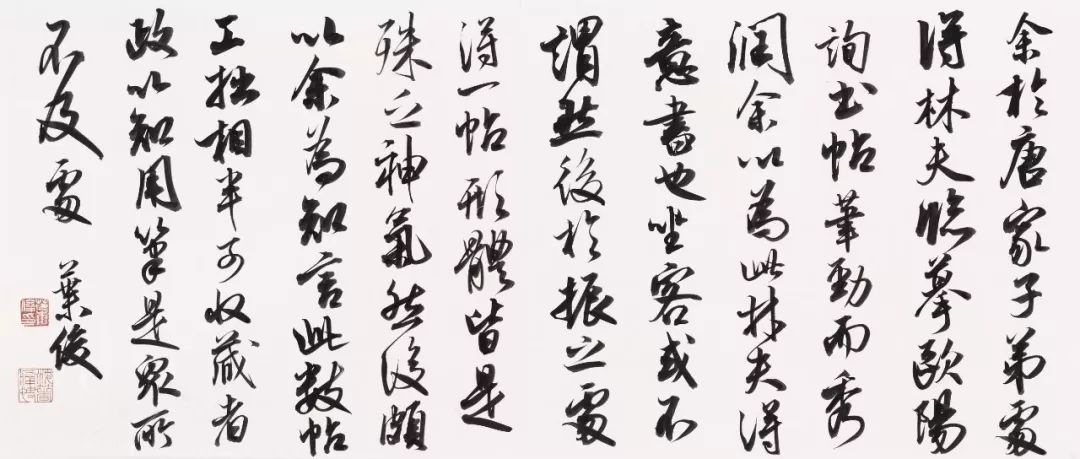 余於唐家子弟處
得林夫臨摹歐陽
詢書帖筆勁而秀
潤余以為此林夫得
意書也坐客或不
謂然後於振之處
得一帖形體皆是
殊乏神氣然後頗
以余為知言此數帖
工拙相半可收藏者
故以知用筆是眾所
不及處
葉俊